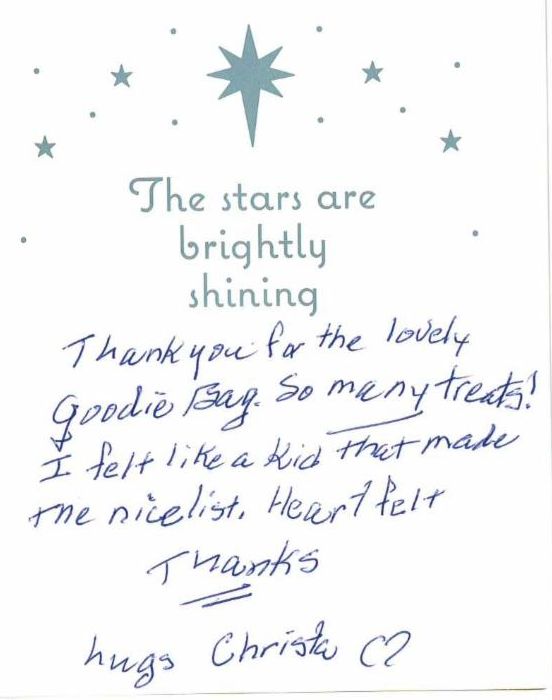 The stars are
brightly
shining
Thank you for the lovely
Goodie Bag. So many treats!
I felt like a kid that made
the nice list. Heart felt
Thanks
hugs Christa